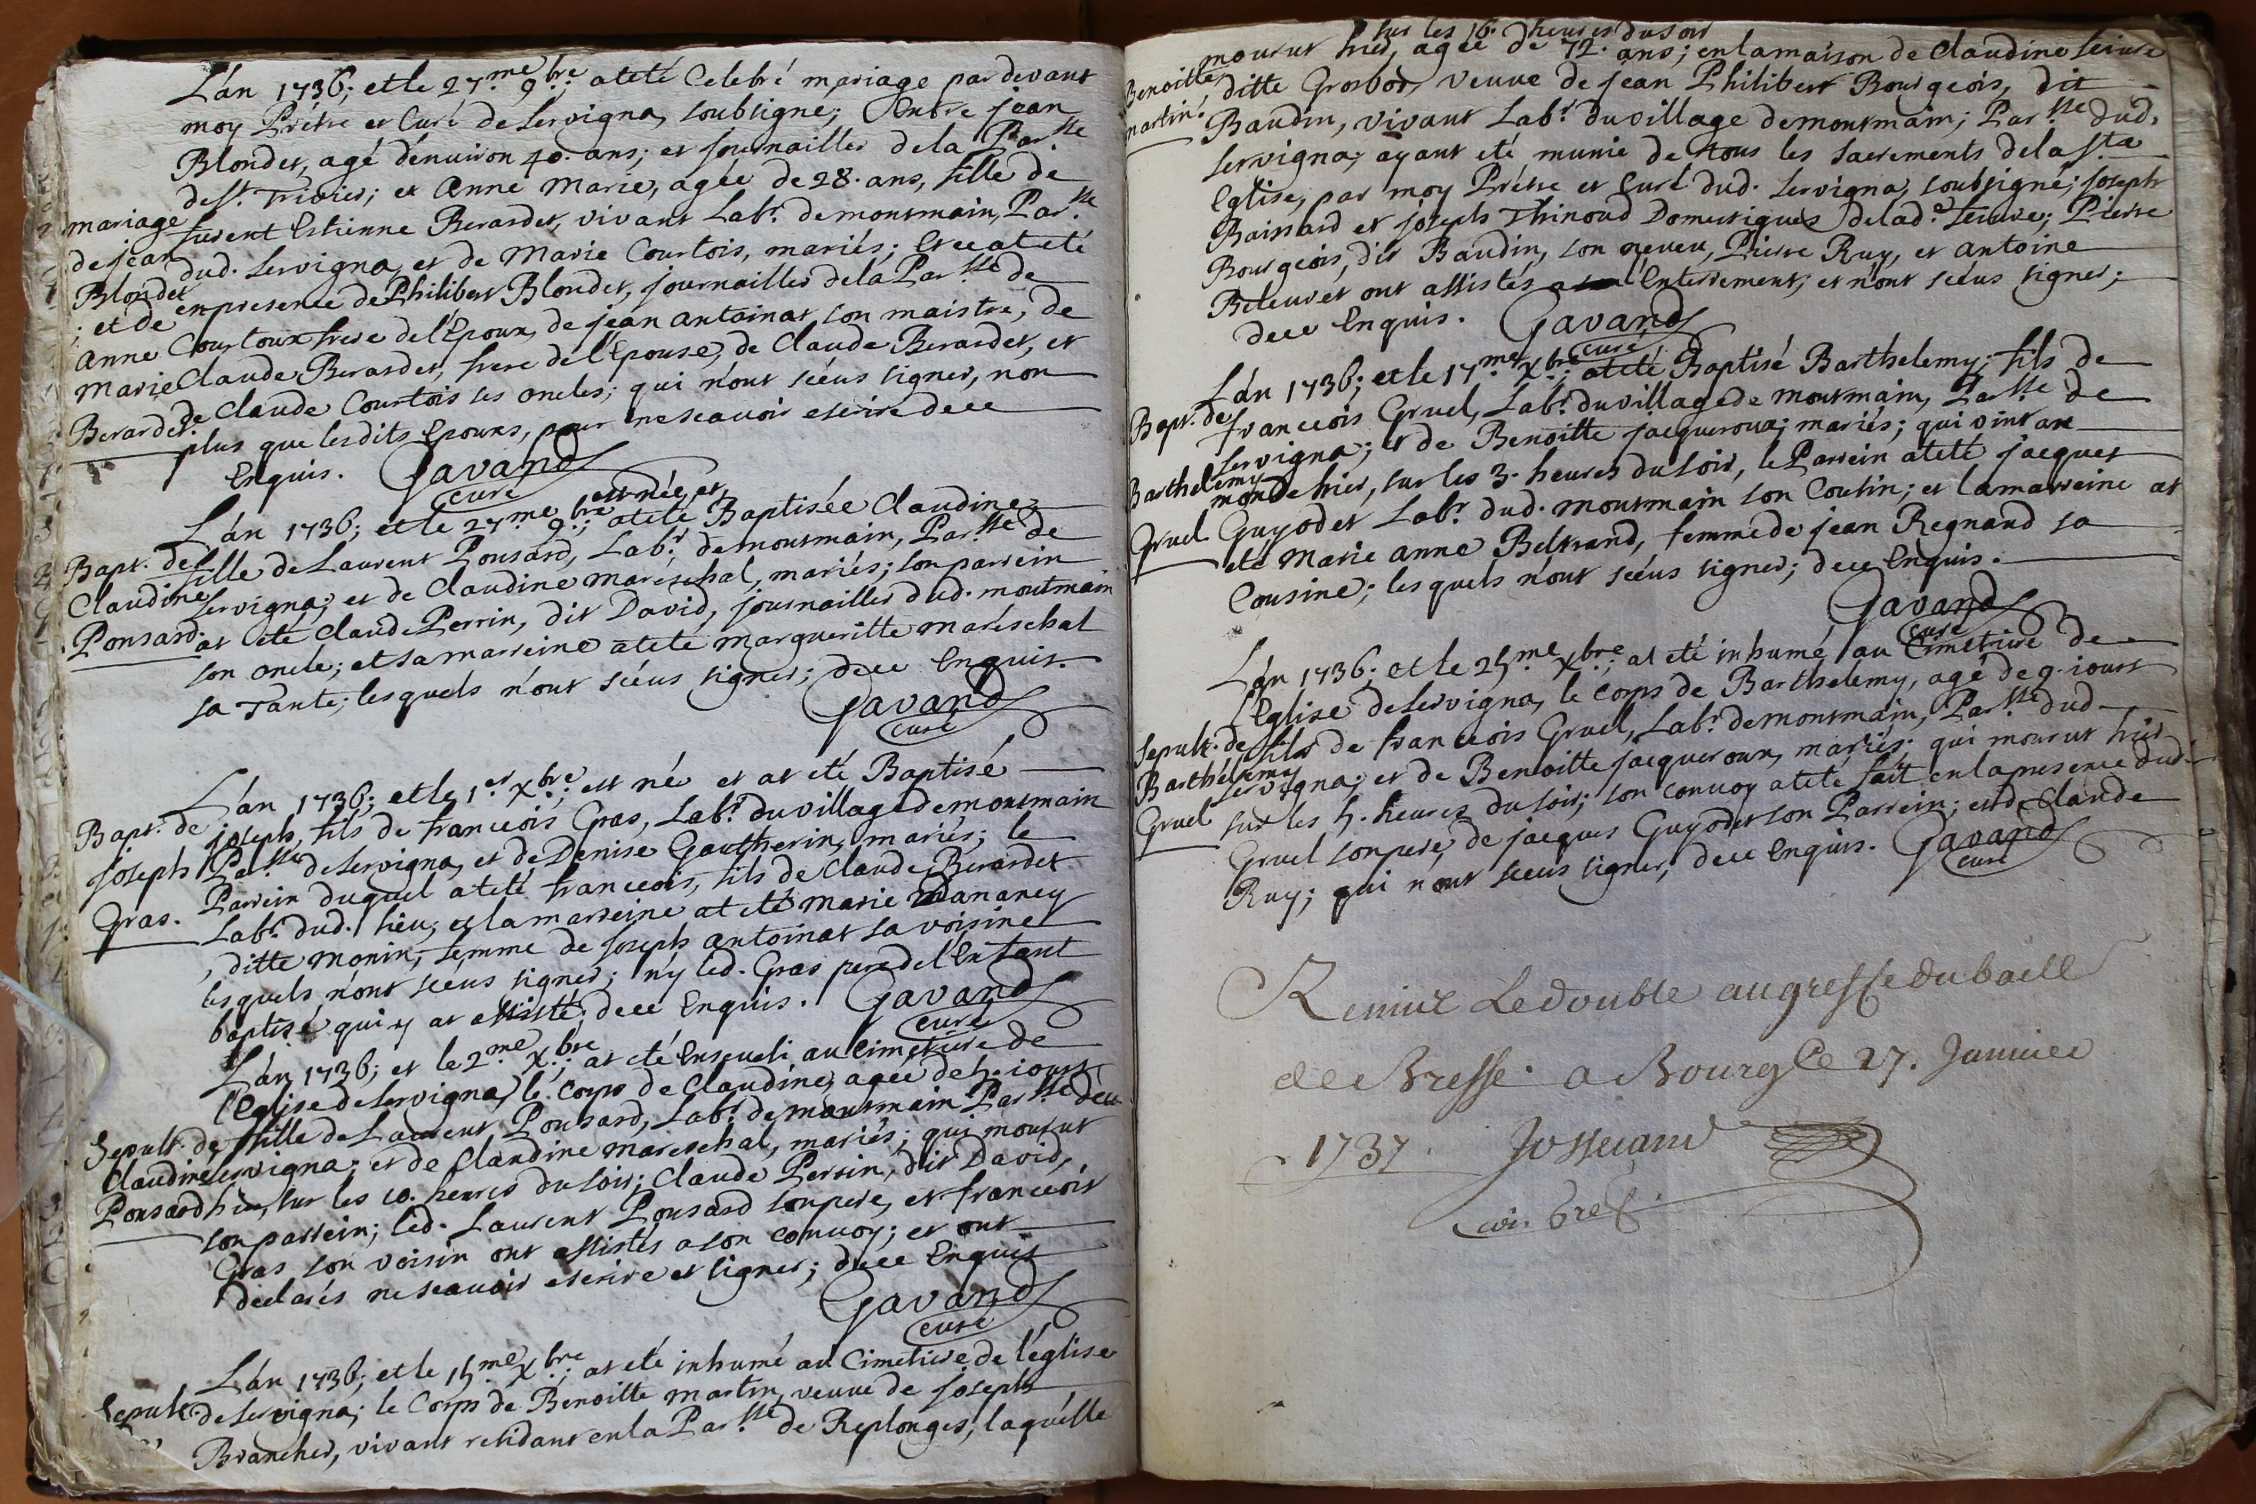 L'an 1736; et le 27.me 9.bre; at eté Celebré mariage par devant
moy Prétre et Curé de Servigna, soubsigné; Entre jean
Blondet, agé d'enuiron 40. ans; et journaillier de la Par.sse
de St. Trivier; et Anne Marie, agée de 28. ans, fille de
furent Estienne Berardet, vivant Labr. de montmain, Par.sse
dud. Servigna, et de Marie Courtois, mariés; Et ce at eté
en presence de Philibert Blondet, journaillier de la Par.sse de
Courtoux frere de l'Epoux, de jean antoinat son maistre, de
Claude Berardet, frere de l'Epouse, de Claude Berardet, et
de Claude Courtois ses oncles; qui n'ont sceus signer, non
plus que lesdits Epoux, pour ne scavoir escrire de ce
Enquis. Gavand
curé
mariage
de jean
Blondet
; et de
anne
marie
Berardet.
L'an 1736; et le 27.me 9.bre; est née, et
at eté Baptisée Claudine
fille de Laurent Ponsard, Labr. de montmain, Par.sse de
Servigna; et de Claudine mareschal, mariés; son parrein
at eté Claude Perrin, dit David, journaillier dud. montmain
son oncle; et sa marreine at eté margueritte mareschal
sa Tante; lesquels n'ont sceus signer; de ce Enquis.
Gavand
curé
Bapt. de
Claudine
Ponsard.
L'an 1736; et le 1.er X.bre; est né et at eté Baptisé
joseph, fils de francois Gras, Labr. du village de montmain
Par.sse de Servigna, et de Denise Gautherin, mariés; le
Parrein duquel at eté francois, fils de Claude Berardet
Labr. dud. lieu; et la marreine at eté marie Dananey
, ditte monin, femme de joseph antoinat sa voisine
lesquels n'ont sceus signer; n'y led. Gras pere de l'Enfant
baptisé qui y at assisté; de ce Enquis. Gavand
curé
Bapt. de
joseph
Gras.
L'an 1736; et le 2.me X.bre; at eté Enseueli au Cimetiere de
l'Eglise de Servigna, le Corps de Claudine, agée de 5. iours
fille de Laurent Ponsard, Labr. de montmain Par.sse de
Servigna; et de Claudine mareschal, mariés; qui mourut
hier, sur les 10. heures du soir; Claude Perrin, dit David,
son parrein; led. Laurent Ponsard son pere, et francois
Gras son voisin ont assistés a son convoy; et ont
declarés ne scauoir escrire et signer; de ce Enquis
Gavand
curé
Sepult. de
Claudine
Ponsard
L'an 1736; et le 15.me X.bre; at eté inhumé au Cimetiere de l'église
de Servigna; le Corps de Benoitte martin, veuve de joseph
Brancher, vivant residant en la Par.sse de Replonges; laquelle
Sepult.
sur les 10. heures du soir
mourut hier, agée de 72. ans; en la maison de Claudine Seiure
ditte Grosbod, veuve de jean Philibert Bourgeois, dit
Baudin, vivant Labr. du village de montmain; Par.sse dud.
Servigna; ayant eté munie de tous les sacrements de la Sta
Eglise, par moy Prétre et Curé dud. Servigna, soubsigné; joseph
Baissard et joseph Thinoud Domestiques de lad.e Seiure; Pierre
Bourgeois, dit Baudin, son neveu, Pierre Ruy, et antoine
Beleuret ont assistés a son Enterrement; et n'ont sceus signer;
de ce Enquis. Gavand
curé
Benoitte
martin.
L'an 1736; et le 17.me X.bre; at eté Baptisé Barthelemy; fils de
francois Gruel, Labr. du village de montmain, Par.sse de
Servigna; et de Benoitte jacqueroux; mariés; qui vint au
monde hier, sur les 3. heures du soir, le Parrein at eté jacques
Guyodet Labr. dud. montmain son Cousin; et la marreine at
eté Marie anne Beltrand, femme de jean Regnaud sa
Cousine; lesquels n'ont sceus signer; de ce Enquis.
Gavand
curé
Bapt. de
Barthelemy
Gruel
L'an 1736; et le 25.me X.bre; at eté inhumé au Cimetiere de
l'Eglise de Servigna, le Corps de Barthelemy, agé de 9. iours
fils de francois Gruel, Labr. de montmain, Par.sse dud.
Servigna; et de Benoitte jacqueroux, mariés; qui mourut hier
sur les 5. heures du soir; son convoy at eté fait en la presence dud.
Gruel son pere, de jacques Guyodet son Parrein; et de Claude
Ruy; qui n'ont sceus signer; de ce Enquis. Gavand
curé
Sepult. de
Barthelemy
Gruel
Remise Le double au greffe du baill
de Bresse. a Bourg Ce 27. Januier
1737. Josserand